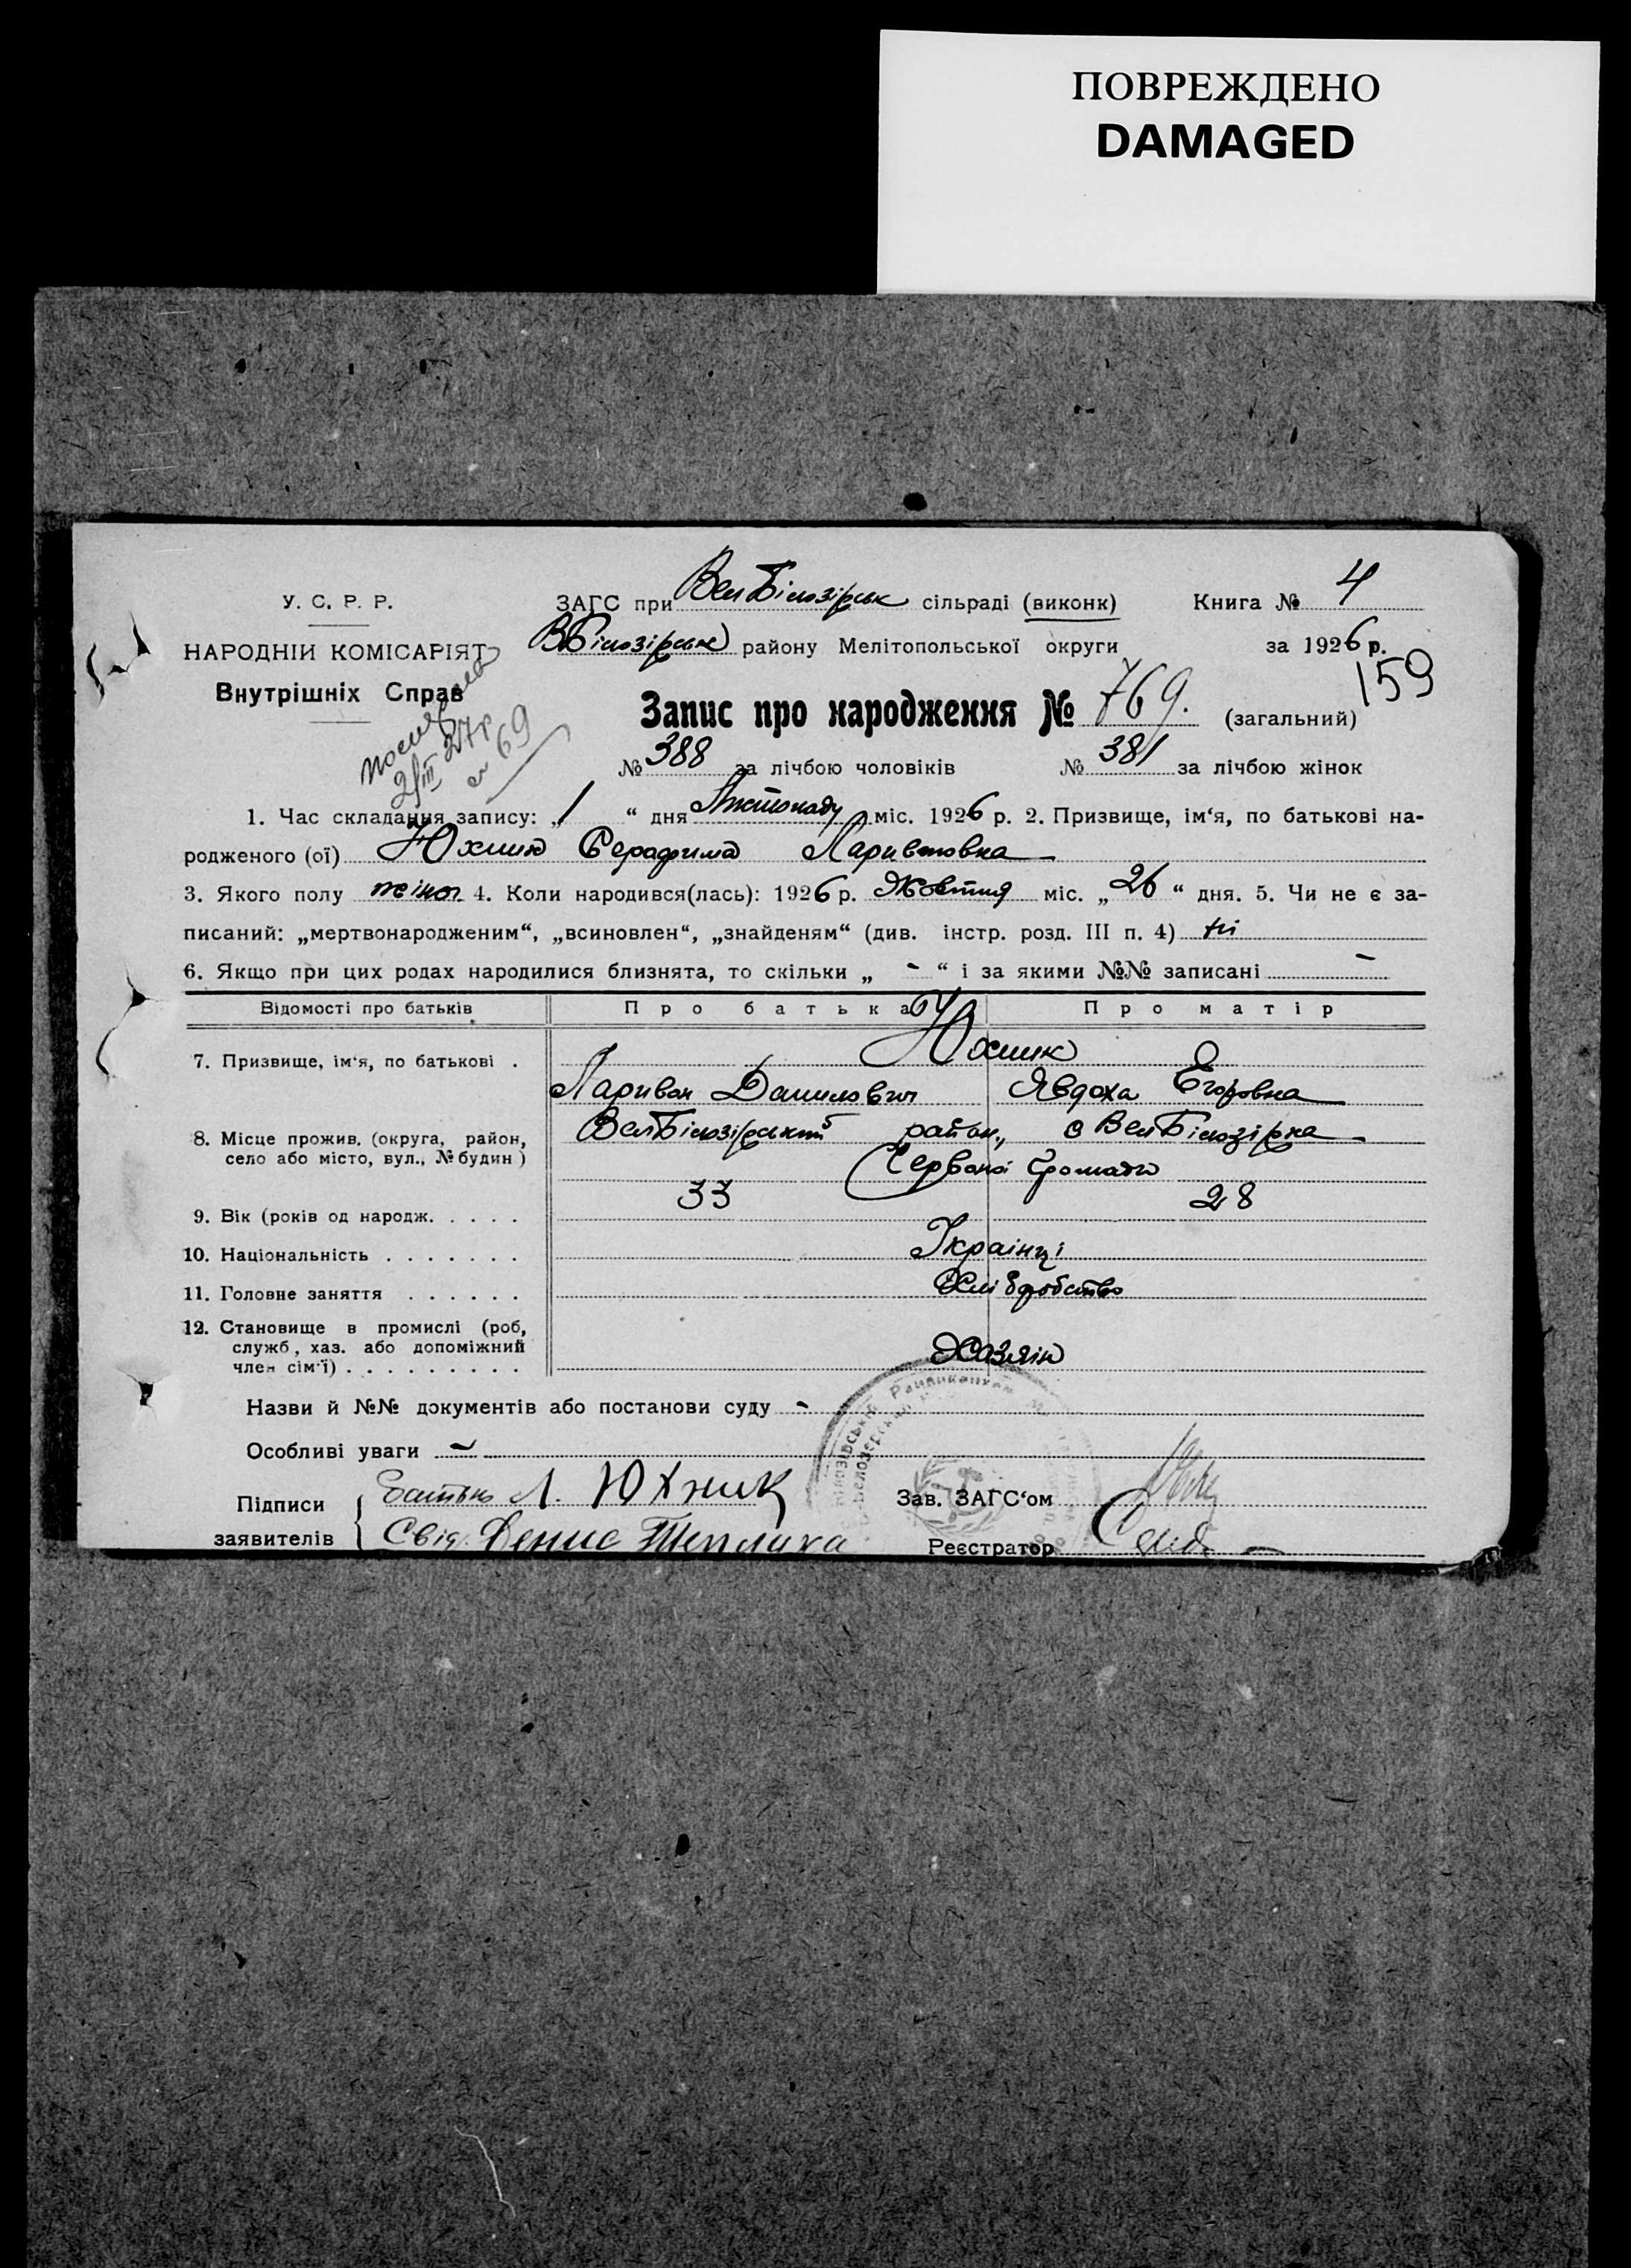 ПОВРЕЖДЕНО
DAMAGED
У. С. Р. Р.
ЗАГС при ВелБілозірськ сільраді (виконк) Книга № 4
НАРОДНІЙ КОМІСАРІЯТ ВБілозірськ району Мелітопольської округи за 1926 р.
Внутрішніх Справ 159
Запис про народження № 769. (загальний)
69
№ 388 за лічбою чоловіків № 381 за лічбою жінок
1. Час складання запису: „ 1 “ дня Листопаду міс. 1926 р. 2. Призвище, ім‘я, по батькові на-
родженого (ої) Юхник Серафима Ларивоновна
3. Якого полу жіноч 4. Коли народився(лась): 1926 р. Жовтня міс. „ 26 “ дня. 5. Чи не є за-
писаний: „мертвонародженим“, „всиновлен“, „знайденям“ (див. інстр. розд. III п. 4) ні
6. Якщо при цих родах народилися близнята, то скільки „ - “ і за якими №№ записані -
Відомості про батьків Про батька Про матір
7. Призвище, ім‘я, по батькові . Юхник
Ларивон Данилович Явдоха Егоровна
8. Місце прожив. (округа, район, ВелБілозірський район, с ВелБілозірка
село або місто, вул., № будин) Червоної Громади
9. Вік (років од народж. . . . . 33 28
10. Національність . . . . . . . Українці
11. Головне заняття . . . . . . Хліборобство
12. Становище в промислі (роб,
служб, хаз. або допоміжний
член сім‘ї) . . . . . . . . . Хазяїн
Назви й №№ документів або постанови суду -
Особливі уваги -
Підписи Батько Л. Юхник Зав. ЗАГС‘ом
заявителів Свід. Денис Теплиха Реєстратор